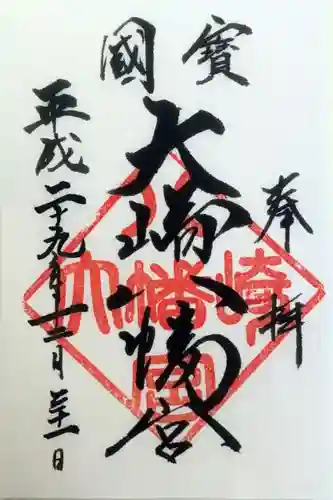 奉拝
國寶
大崎八幡宮
平成二十九年十二月三十一日
大崎八幡宮